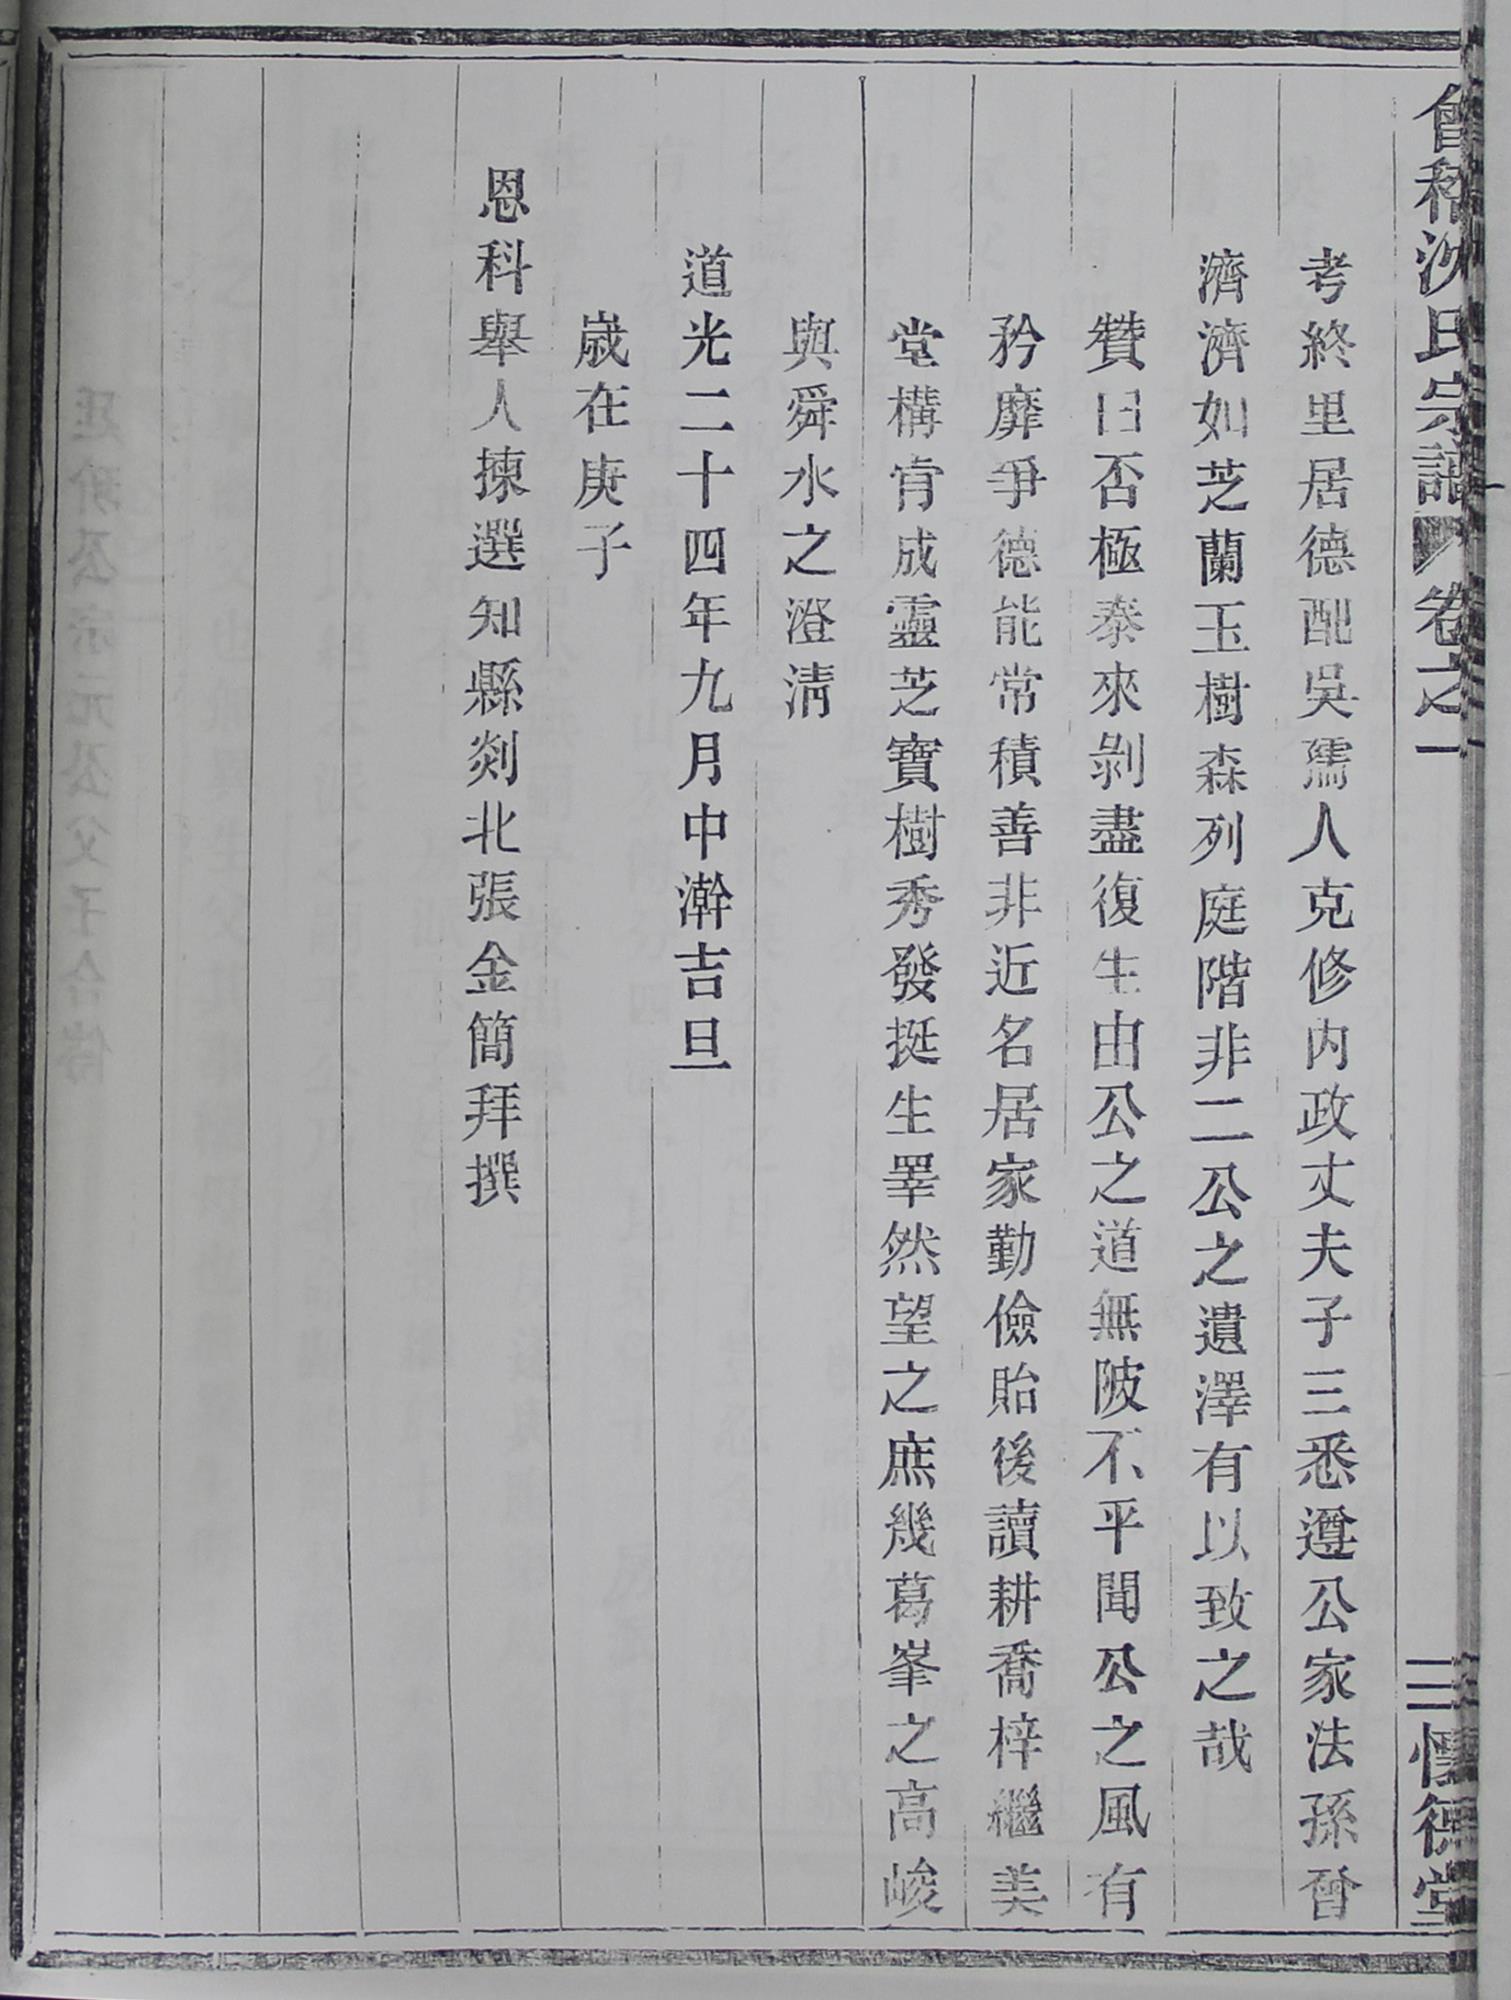 會稽沈氏宗譜 卷之一 三 懷德堂
考終里居德配吳孺人克修内政丈夫子三悉遵公家法孫曾
濟濟如芝蘭玉樹森列庭階非二公之遺澤有以致之哉
贊曰否極泰來剝盡復生由公之道無陂不平聞公之風有
矜靡爭德能常積善非近名居家勤儉貽後讀耕喬梓繼美
堂構肯成靈芝寶樹秀發挺生睪然望之庶幾葛峯之高峻
與舜水之澄清
道光二十四年九月中澣吉旦
歲在庚子
恩科舉人揀選知縣剡北張金簡拜撰